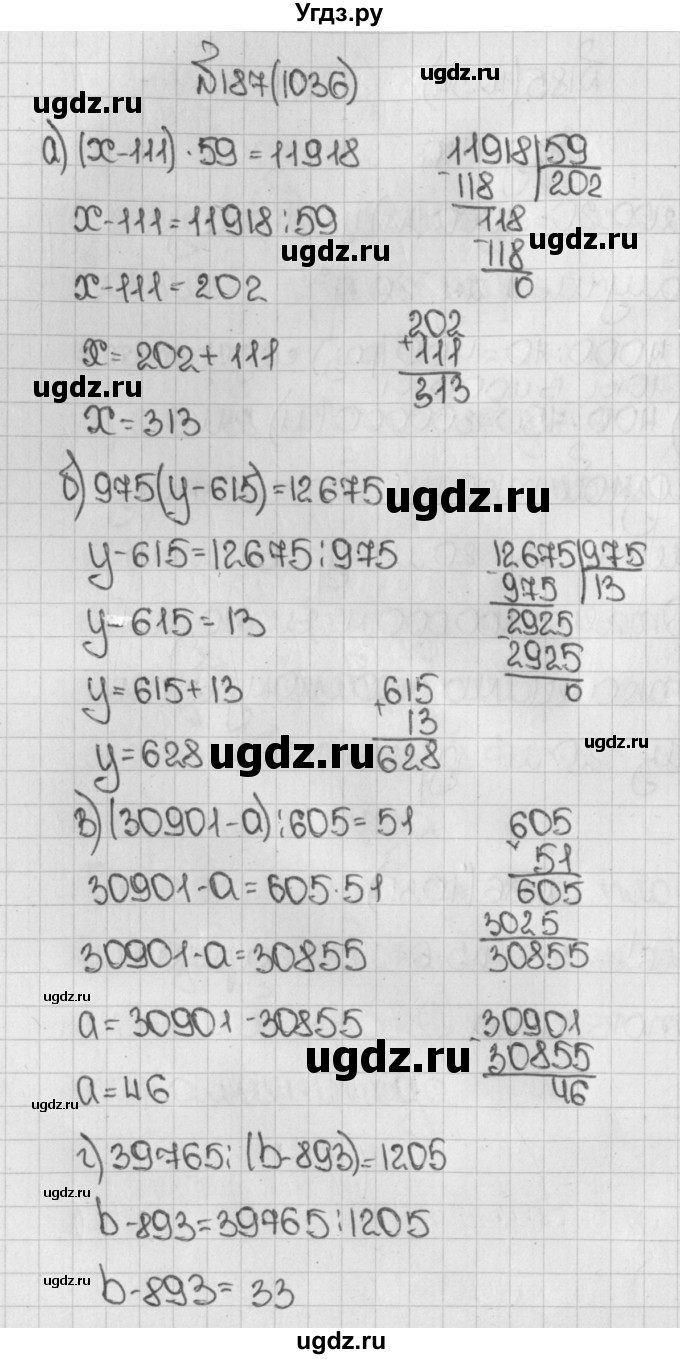 Угдз.ру
№187(1036)
ugdz.ru
ugdz.ru
а) (x-111)·59=11918
11918 59
118 202
x-111=11918:59
118
ugdz.ru
ugdz.ru
118
x-111=202
0
202
x=202+111
+111
ugdz.ru
313
x=313
б) 975(y-615)=12675
ugdz.ru
y-615=12675:975
12675 975
975 13
y-615=13
2925
2925
y=615+13
+615
0
13
y=628
ugdz.ru
628
ugdz.ru
в) (30901-a):605=51
605
× 51
30901-a=605·51
605
3025
30901-a=30855
30855
ugdz.ru
a=30901-30855
-30901
ugdz.ru
30855
a=46
46
ugdz.ru
г) 39765:(b-893)=1205
ugdz.ru
b-893=39765:1205
ugdz.ru
b-893=33
ugdz.ru